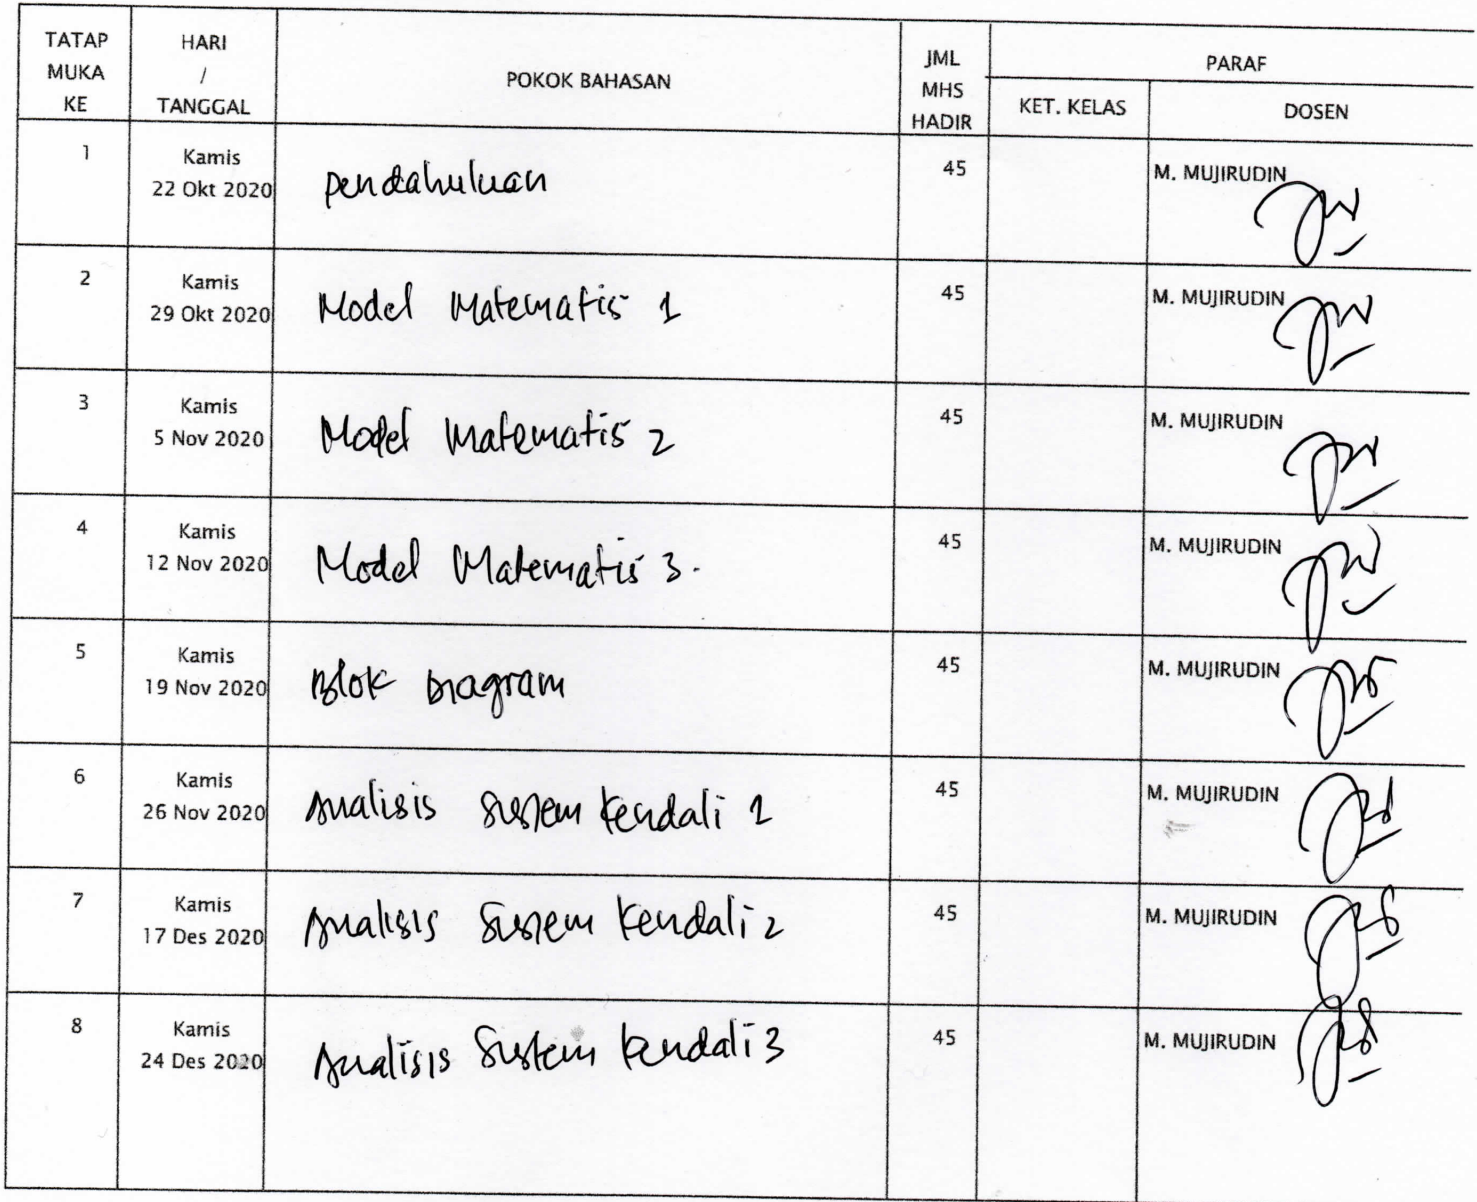 TATAP MUKA KE
HARI / TANGGAL
POKOK BAHASAN
JML MHS HADIR
PARAF
KET. KELAS
DOSEN
1
Kamis
22 Okt 2020
Pendahuluan
45
M. MUJIRUDIN
2
Kamis
29 Okt 2020
Model Matematis 1
45
M. MUJIRUDIN
3
Kamis
5 Nov 2020
Model Matematis 2
45
M. MUJIRUDIN
4
Kamis
12 Nov 2020
Model Matematis 3.
45
M. MUJIRUDIN
5
Kamis
19 Nov 2020
Blok Diagram
45
M. MUJIRUDIN
6
Kamis
26 Nov 2020
Analisis Sistem Kendali 1
45
M. MUJIRUDIN
7
Kamis
17 Des 2020
Analisis Sistem Kendali 2
45
M. MUJIRUDIN
8
Kamis
24 Des 2020
Analisis Sistem Kendali 3
45
M. MUJIRUDIN